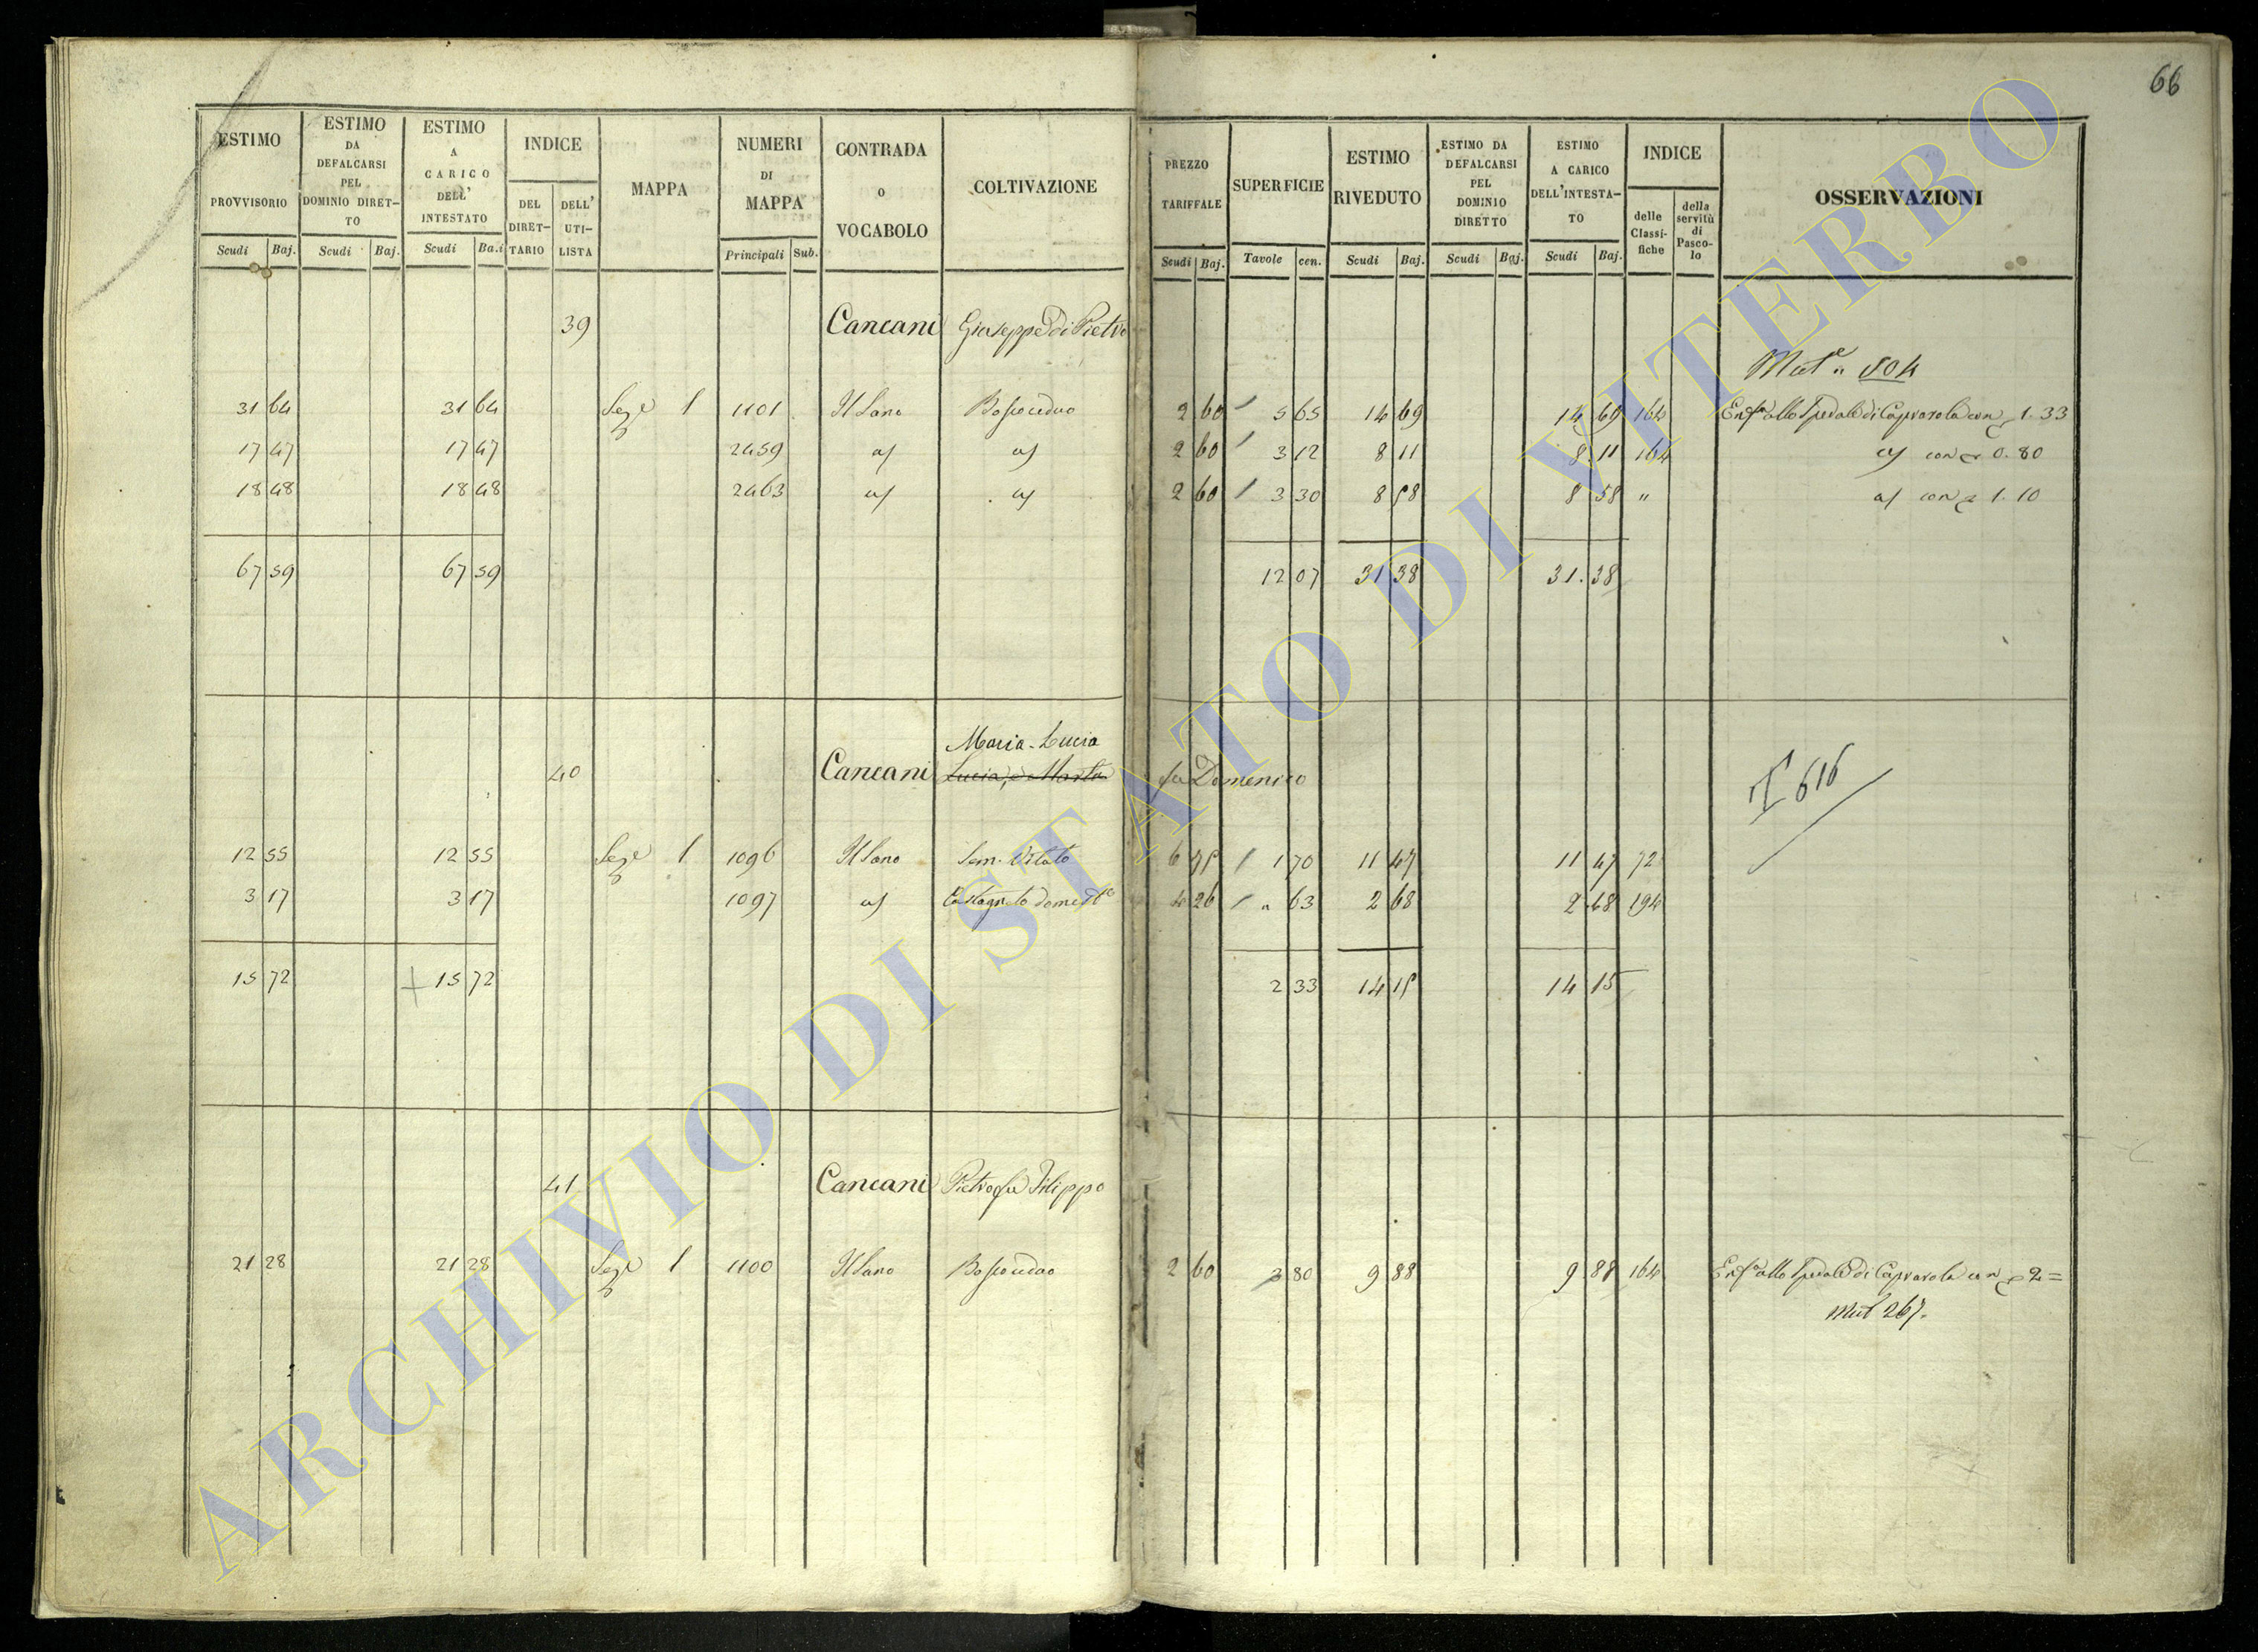 66
ESTIMO PROVVISORIO Scudi Baj.
ESTIMO DA DEFALCARSI PEL DOMINIO DIRETTO Scudi Baj.
ESTIMO A CARICO DELL' INTESTATO Scudi Ba.i
INDICE DEL DIRETTARIO DELL' UTILISTA
MAPPA
NUMERI DI MAPPA Principali Sub.
CONTRADA o VOCABOLO
COLTIVAZIONE
PREZZO TARIFFALE Scudi Baj.
SUPERFICIE Tavole cen.
ESTIMO RIVEDUTO Scudi Baj.
ESTIMO DA DEFALCARSI PEL DOMINIO DIRETTO Scudi Baj.
ESTIMO A CARICO DELL'INTESTATO Scudi Baj.
INDICE delle Classifiche della servitù di Pascolo
OSSERVAZIONI
39 Cancani Giuseppe di Pietro
Mut.e " 804
31 64 31 64 Seze 1 1101 Il Sano Bosco ceduo 2 60 5 65 14 69 14 69 164 Enf.a allo Spedale di Caprarola con 1.33
17 47 17 47 2459 2 60 3 12 8 11 8.11 164 con 0.80
18 48 18 48 2463 2 60 3 30 8 58 8 58 " con 1.10
67 59 67 59 12 07 31 38 31.38
Maria-Lucia
40 Cancani Lucia, e Marta fu Domenico
616
12 55 12 55 Seze 1 1096 Il Sano Sem. Vitato 6 75 1 70 11 47 11 47 72
3 17 3 17 1097 Castagneto domest.o 4 26 " 63 2 68 2.68 194
15 72 15 72 2 33 14 15 14 15
41 Cancani Pietro fu Filippo
21 28 21 28 Seze 1 1100 Il Sano Bosco ceduo 2 60 3 80 9 88 9 88 164 Enf.a allo Spedale di Caprarola con 2=
Mut 267.
ARCHIVIO DI STATO DI VITERBO